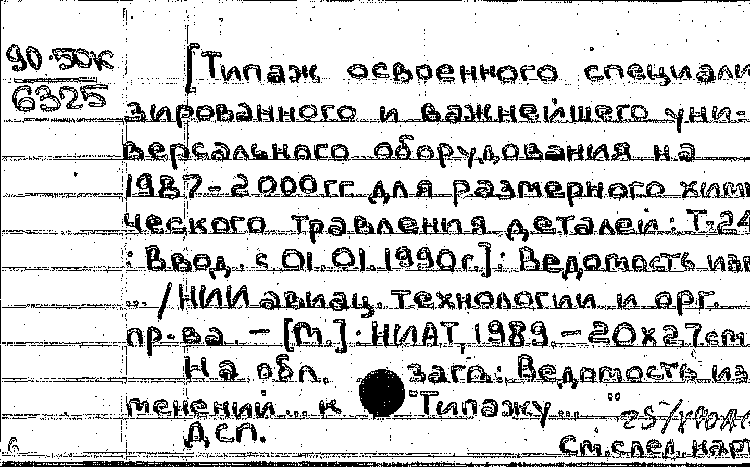 90-50к
6325
[Типаж освоенного специали
зированного и важнейшего уни-
версального оборудования на
1987-2000гг для размерного хими
ческого травления деталей: Т-24
: Ввод. с 01.01.1990г.]: Ведомость изм
... /НИИ авиац. технологии и орг.
пр-ва. – [М.]: НИАТ, 1989. – 20x27см
На обл. загл: Ведомость из
менений... к "Типажу..."
ДСП.
См. след. карт